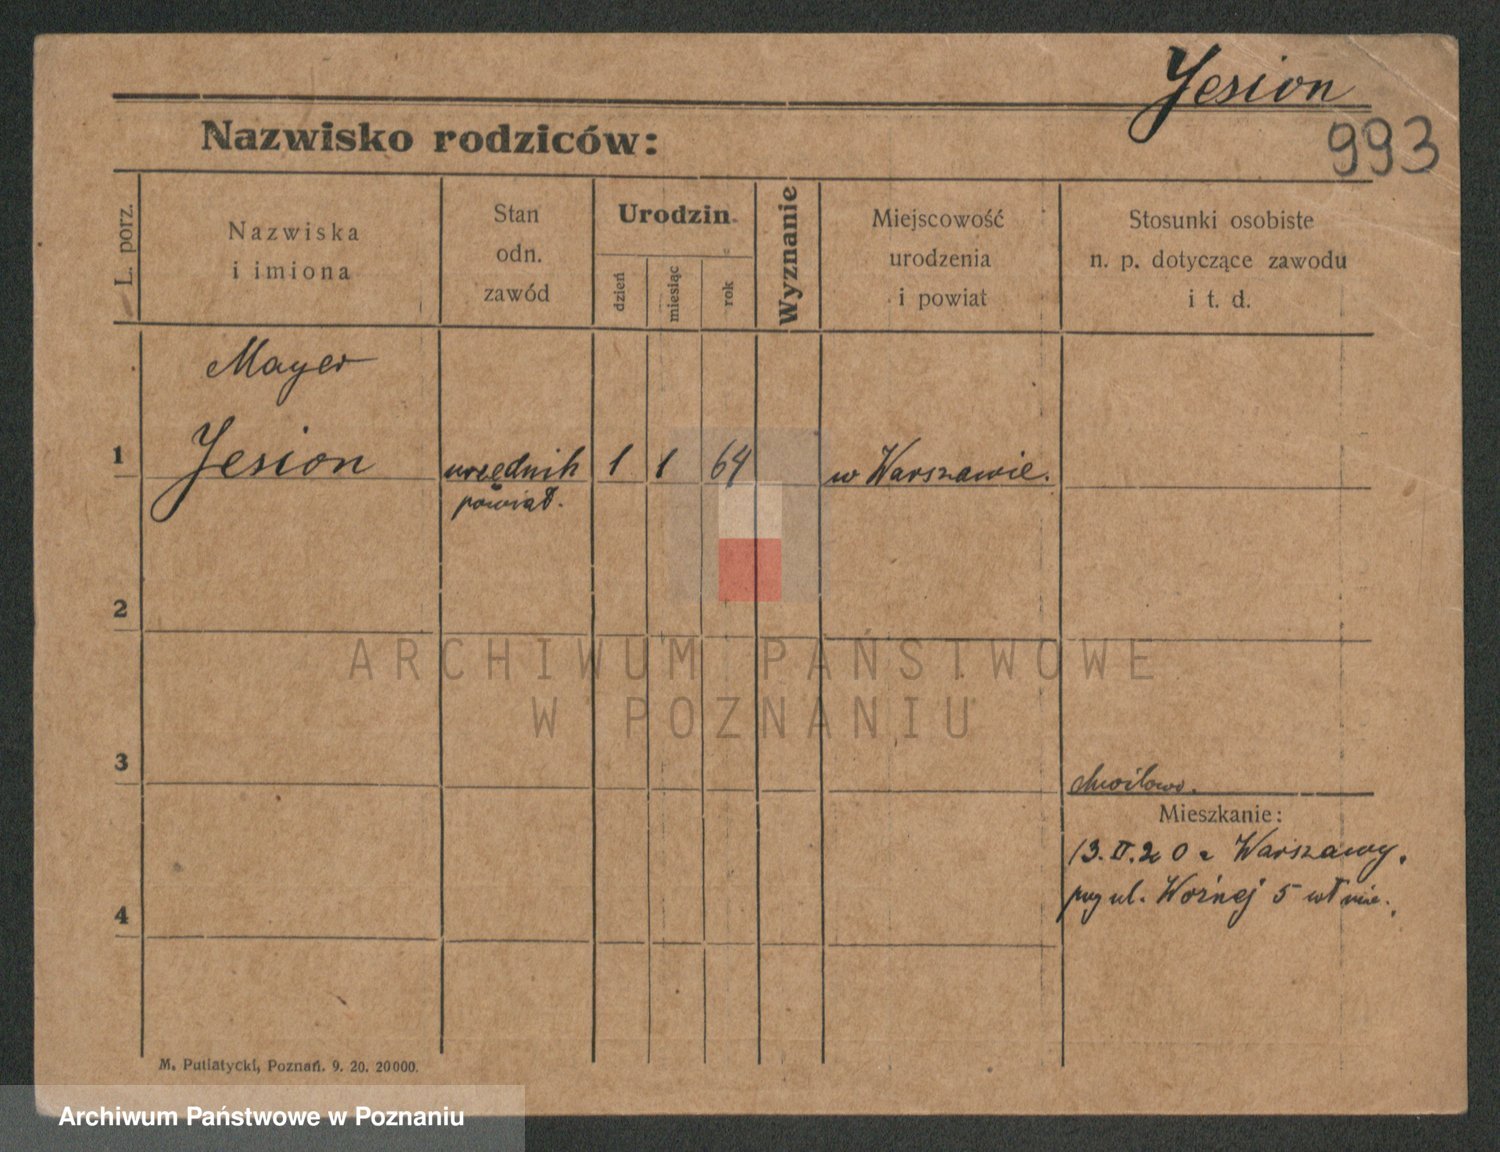 Jesion
993
Nazwisko rodziców:
L. porz.
Nazwiska
i imiona
Stan
odn.
zawód
Urodzin
dzień
miesiąc
rok
Wyznanie
Miejscowość
urodzenia
i powiat
Stosunki osobiste
n. p. dotyczące zawodu
i t. d.
Mayer
1 Jesion urzędnik 1 1 64 w Warszawie.
powiat.
2
ARCHIWUM PAŃSTWOWE
W POZNANIU
3
chwilowo.
Mieszkanie:
13.II.20 z Warszawy.
przy ul. Woźnej 5
4
M. Putiatycki, Poznań. 9. 20. 20000.
Archiwum Państwowe w Poznaniu